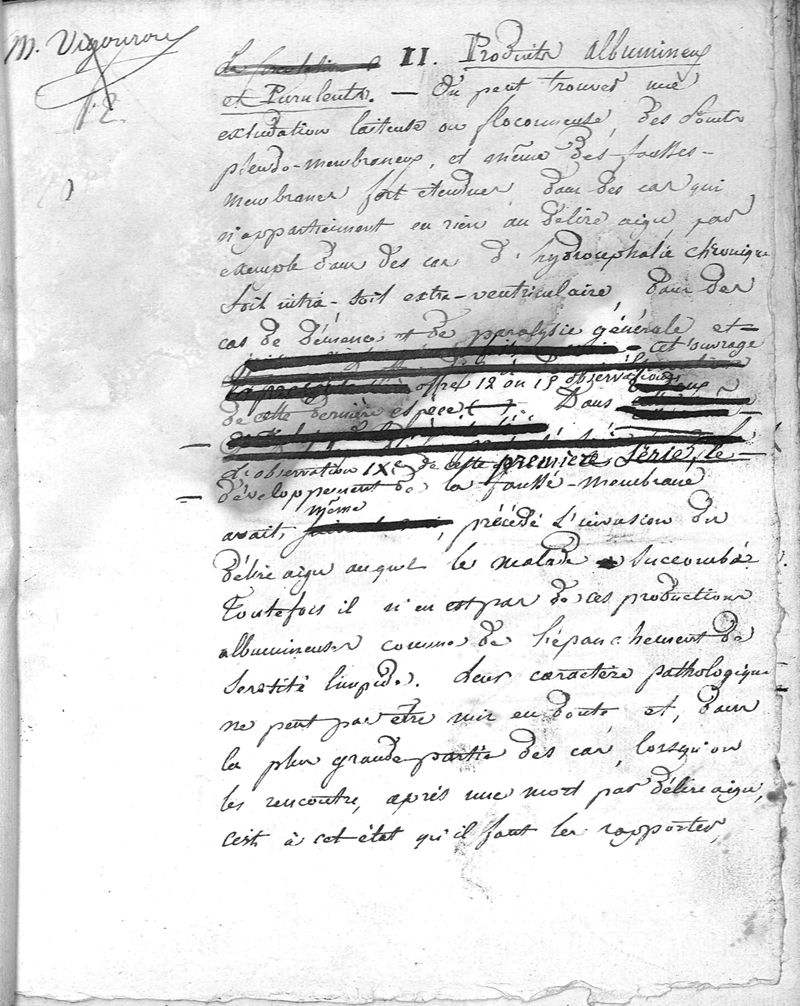 M. Vigouroux
II. Produits albumineux
et Purulents. — On peut trouver une
exhudation laiteuse ou floconneuse, des
pseudo-membraneux, et même des fausses-
membranes fort etendues dans des cas qui
n'appartiennent en rien au délire aigu, par
exemple dans des cas d'hydrocephalie chronique
soit intra- soit extra-ventriculaire dans des
cas de démence et de paralysie générale et —
— cet ouvrage
offre 18 ou 19 observations
de cette dernière espèce ( ). Dans
—
d'observation IXe de cette première série, le —
— développement de la fausse-membrane
même
avait, , précédé l'invasion du
délire aigu auquel le malade succomba.
Toutefois il n'en est pas de ces productions
albumineuses comme de l'épanchement de
serosité limpide. Leur caractère pathologique
ne peut pas être mis en doute et, dans
la plus grande partie des cas, lorsqu'on
les rencontre, après une mort par délire aigu,
c'est à cet état qu'il faut les rapporter,